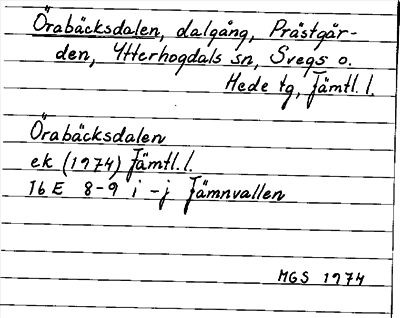 Örabäcksdalen, dalgång, Prästgår-
den, Ytterhogdals sn, Svegs o.
Hede tg, Jämtl. l.
Örabäcksdalen
ek (1974) Jämtl. l.
16 E 8-9 i - j Jämnvallen
MGS 1974